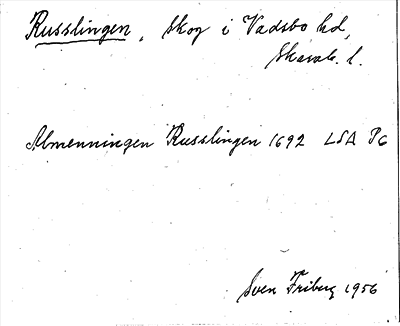 Russlingen, skog i Vadsbo hd,
Skarab. l.
Almenningen Russlingen 1692 LSA P6
Sven Friberg 1956